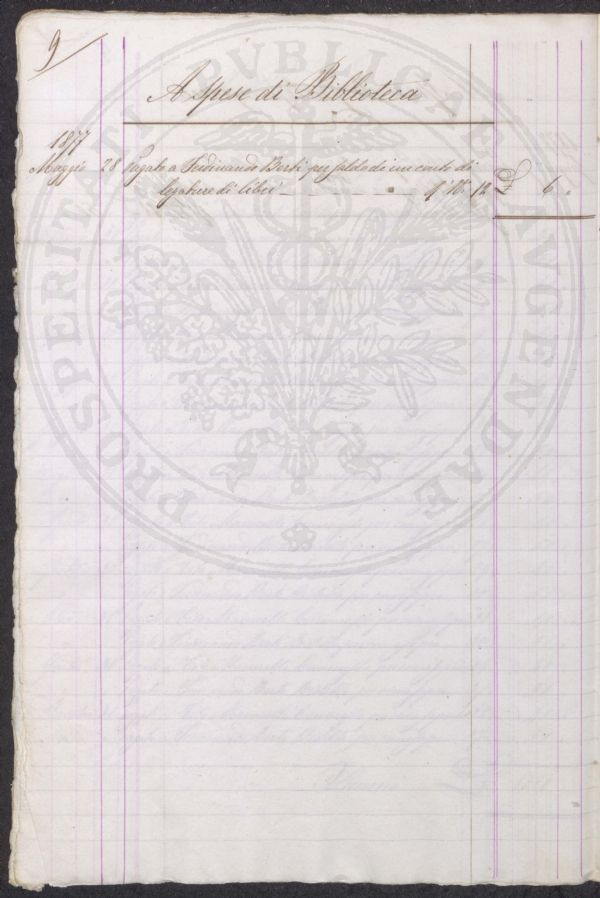 9
A spese di Biblioteca
1877
Maggio 28 Pagate a Ferdinando Berti per saldo di un conto di £ 6 "
legature di libri 12
PROSPERITATI PVBLICAE AVGENDAE